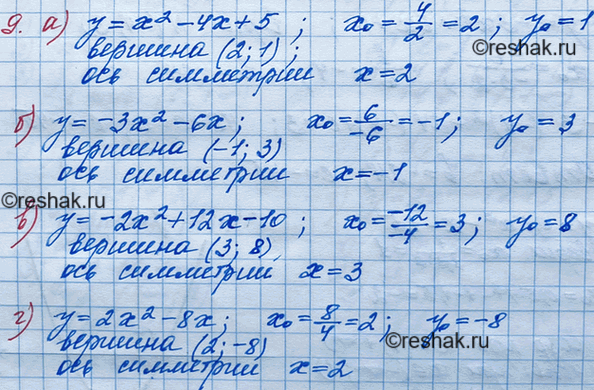 9. а) y = x² - 4x + 5 ; x₀ = 4/2 = 2 ; y₀ = 1
вершина (2; 1) ;
ось симметрии x = 2
©reshak.ru
б) y = -3x² - 6x ; x₀ = 6/-6 = -1 ; y₀ = 3
вершина (-1; 3)
ось симметрии x = -1
©reshak.ru
в) y = -2x² + 12x - 10 ; x₀ = -12/-4 = 3 ; y₀ = 8
вершина (3; 8),
ось симметрии x = 3
г) y = 2x² - 8x ; x₀ = 8/4 = 2 ; y₀ = -8
©reshak.ru
вершина (2; -8)
ось симметрии x = 2